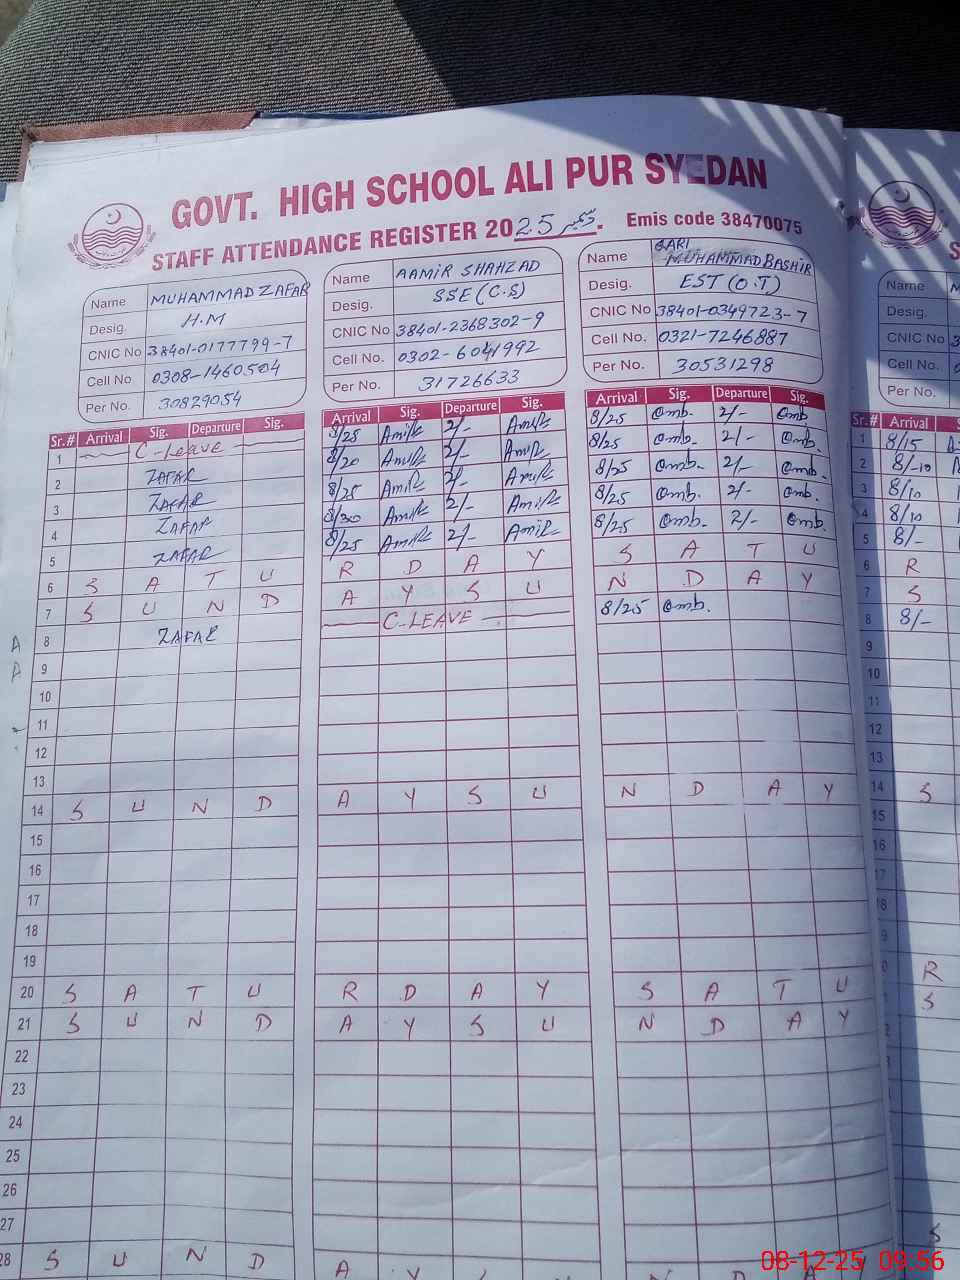 GOVT. HIGH SCHOOL ALI PUR SYEDAN
STAFF ATTENDANCE REGISTER 2025 دسمبر. Emis code 38470075
Name MUHAMMAD ZAFAR
Desig. H.M
CNIC No 38401-0177799-7
Cell No 0308-1460504
Per No. 30829054
Name AAMIR SHAHZAD
Desig. SSE (C.S)
CNIC No 38401-2368302-9
Cell No. 0302-6041992
Per No. 31726633
Name QARI MUHAMMAD BASHIR
Desig. EST (O.T)
CNIC No 38401-0349723-7
Cell No. 0321-7246887
Per No. 30531298
Sr.# Arrival Sig. Departure Sig. Arrival Sig. Departure Sig. Arrival Sig. Departure Sig. Sr.# Arrival
1 C-Leave 8/25 Amir 2/- Amir 8/25 omb. 2/- omb. 1 8/15
2 ZAFAR 8/20 Amir 2/- Amir 8/25 omb. 2/- omb. 2 8/-10
3 ZAFAR 8/25 Amir 2/- Amir 8/25 omb. 2/- omb. 3 8/10
4 ZAFAR 8/30 Amir 2/- Amir 8/25 omb. 2/- omb. 4 8/10
5 ZAFAR 8/25 Amir 2/- Amir 8/25 omb. 2/- omb. 5 8/-
6 S A T U R D A Y S A T U 6 R
7 S U N D A Y S U N D A Y 7 S
8 ZAFAR C-LEAVE 8/25 omb. 8 8/-
9 9
10 10
11 11
12 12
13 13
14 S U N D A Y S U N D A Y 14 S
15 15
16 16
17 17
18 18
19 9
20 S A T U R D A Y S A T U 0 R
21 S U N D A Y S U N D A Y S
22
23
24
25
26
27 S
28 S U N D A Y S U N D A Y
08-12-25 09:56